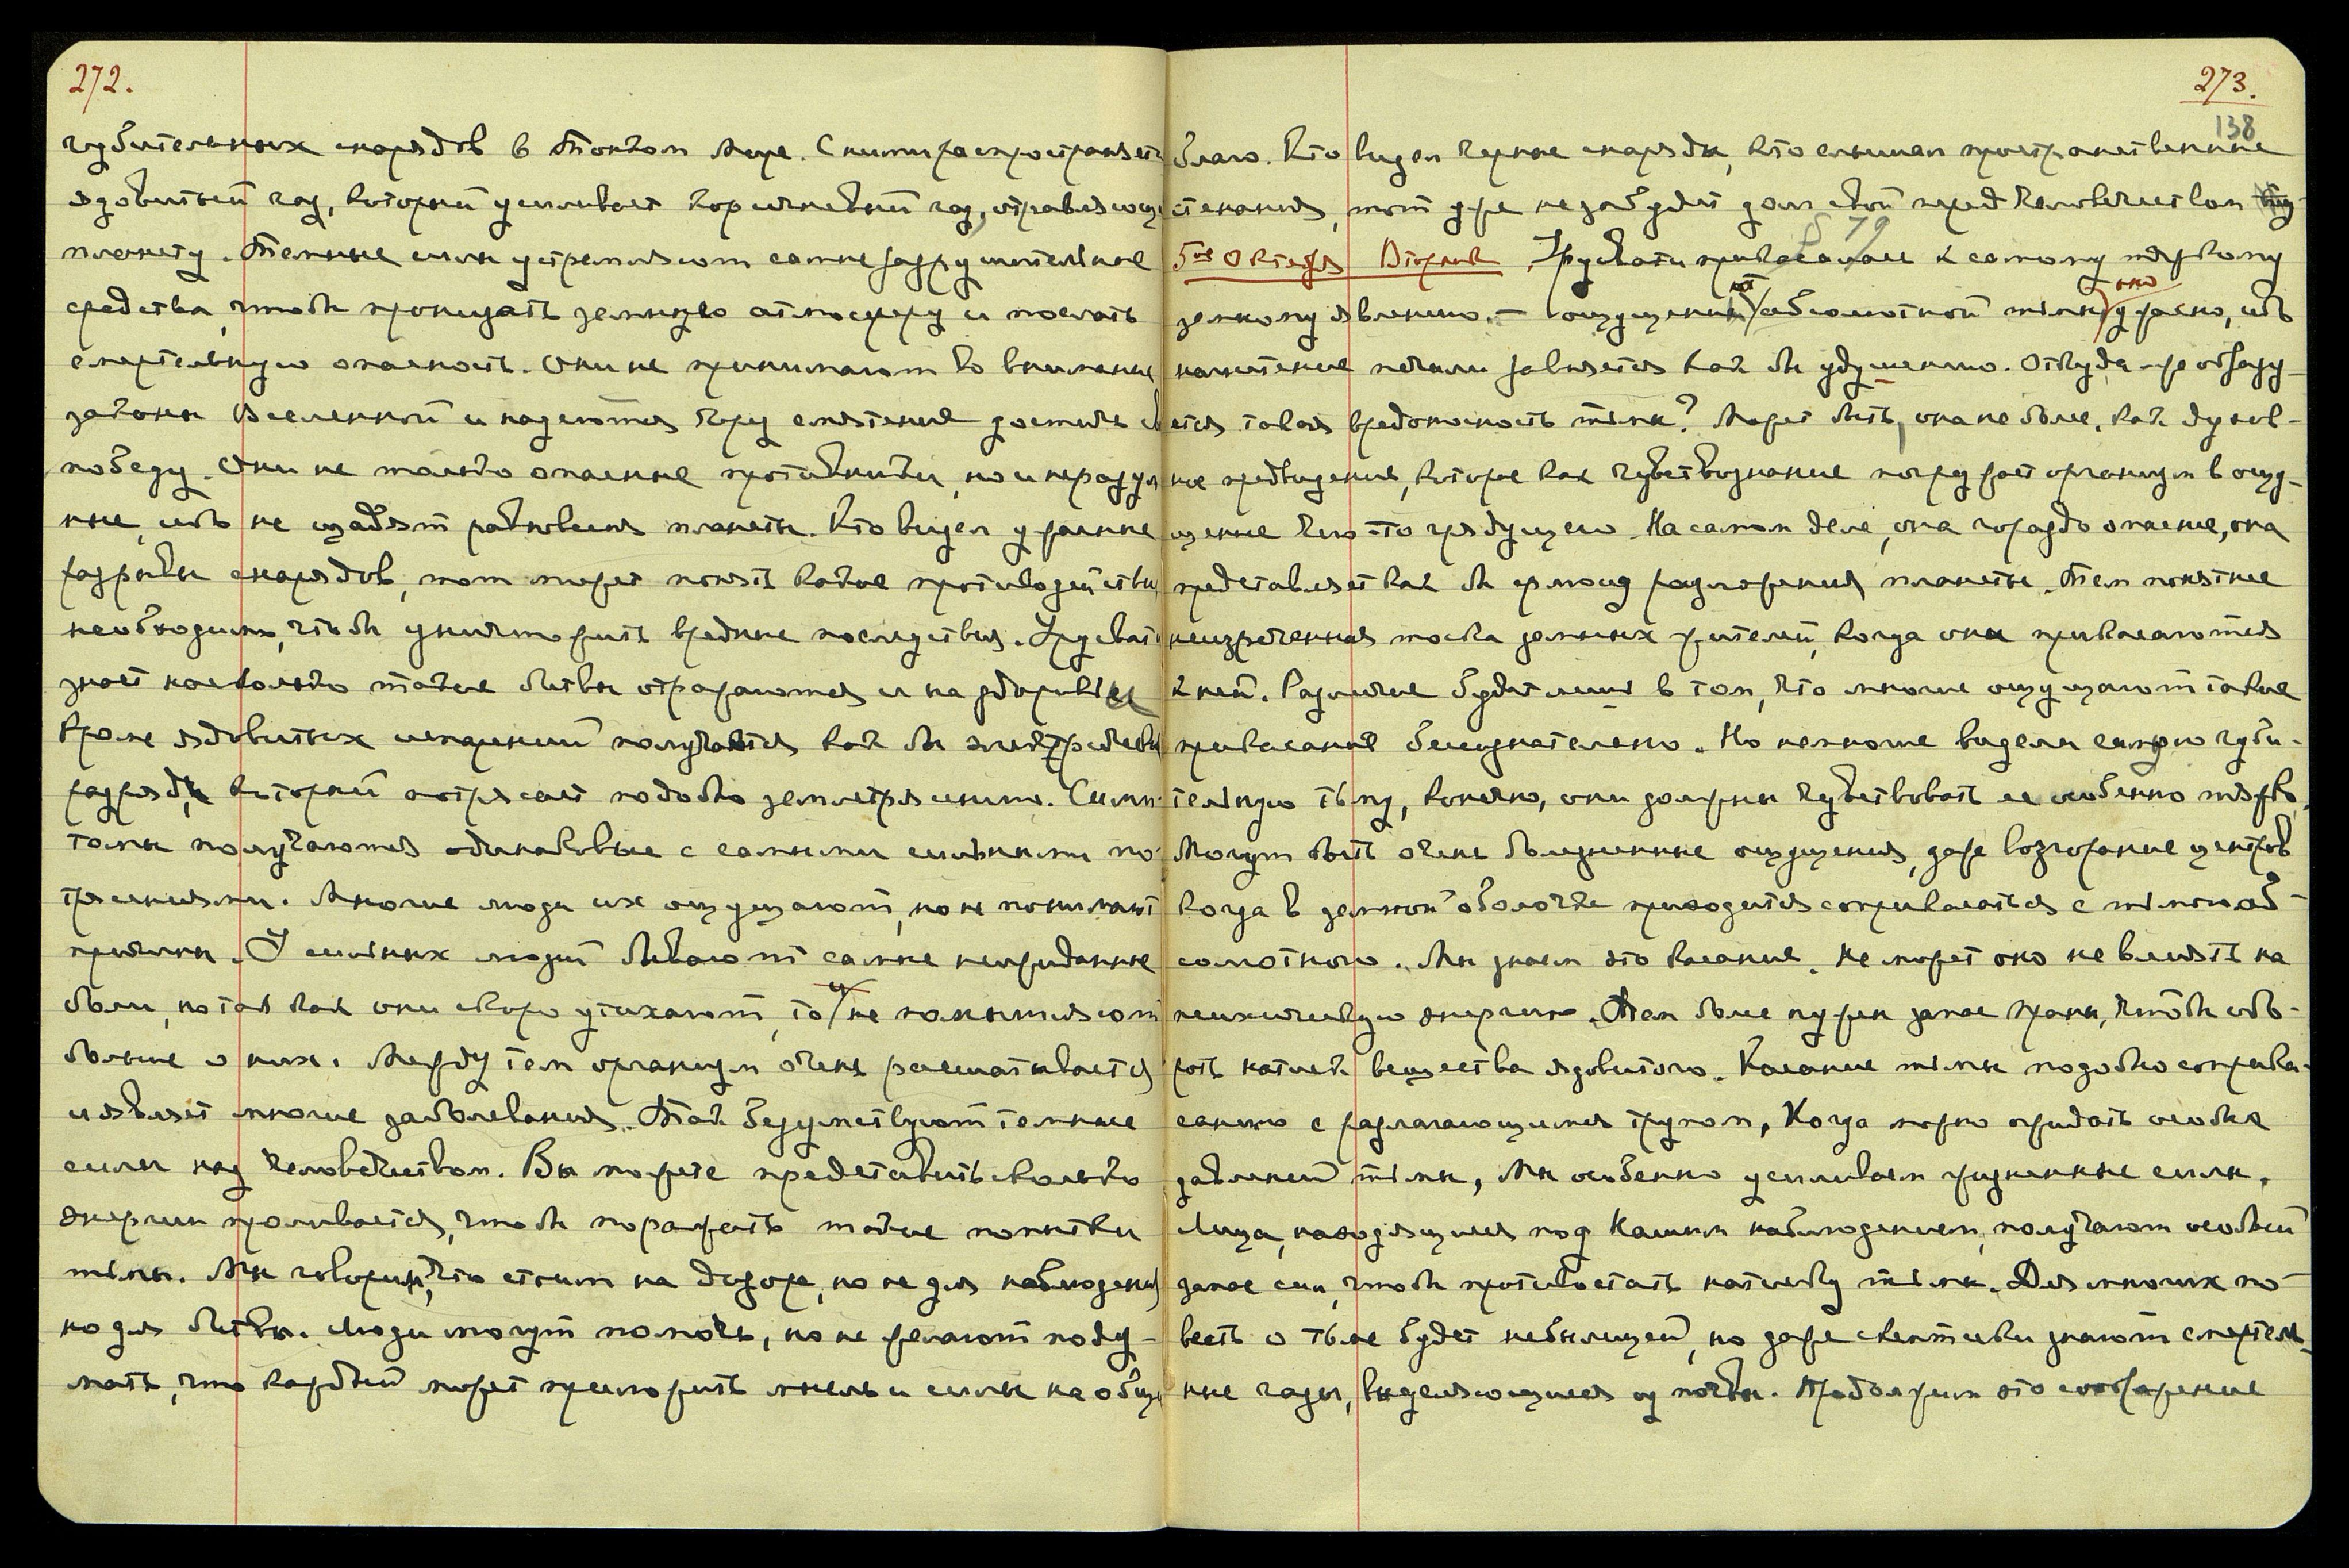 272.
губительных снарядов в Тонком Мире. С ними распространяется
ядовитый газ, который усиливает коричневый газ, отравляющий
планету. Темные силы устремляют самые разрушительные
средства, чтобы проницать земную атмосферу и послать
смертельную опасность. Они не принимают во внимание
законы Вселенной и надеются через смятение достичь
победу. Они не только опасные противники, но и неразум
ные, ибо не щадят равновесия планеты. Кто видел ужасные
разрывы снарядов, тот может понять какое противодействие
необходимо, чтобы уничтожить вредные последствия. Урусвати
знает насколько такие битвы отражаются и на здоровье
Кроме ядовитых испарений получается как бы электрический
разряд, который потрясает подобно землетрясению. Симп-
томы получаются одинаковые с самыми сильными по-
трясениями. Многие люди их ощущают, но не понимают
причины. У сильных людей бывают самые неожиданные
боли, но так как они скоро утихают, то и не помышляют
больше о них. Между тем организм очень расшатывается
и являет многие заболевания. Так безумствуют темные
силы над человечеством. Вы можете представить сколько
энергии проливается, чтобы поражать такие попытки
тьмы. Мы говорим, что стоим на дозоре, но не для наблюдения
но для битвы. Люди могут помочь, но не желают поду-
мать, что каждый может приложить мысль и силы на общее
273.
138
благо. Кто видел черные снаряды, кто слышал пространственные
стенания, тот уже не забудет долг свой перед человечеством
§ 79
5ое Октября Вторник Урусвати прикасалась к самому тяжкому
земному явлению. – ощущению абсолютной тьмы, оно ужасно, ибо
нагнетение печали равняется как бы удушению. Откуда-же образу-
ется такая вредоносность тьмы? Может быть, она не более, как духов-
ное предвидение, которое как чувствознание погружает организм в ощу-
щение чего-то грядущего. На самом деле, она гораздо опаснее, она
представляет как бы эрмонд разложения планеты. Тем понятнее
неизреченная тоска земных жителей, когда они прикасаются
к ней. Различие будет лишь в том, что многие ощущают такие
прикасания бессознательно. Но немногие видели самую губи-
тельную тьму, конечно, они должны чувствовать ее особенно тяжко.
Могут быть очень болезненные ощущения, даже возгорание центров
когда в земной оболочке приходится соприкасаться с тьмою аб-
солютною. Мы знаем это касание. Не может оно не влиять на
психическую энергию. Тем более нужен запас праны, чтобы избе-
жать натиск вещества ядовитого. Касание тьмы подобно соприка-
санию с разлагающимся трупом, Когда можно ожидать особых
давлений тьмы, Мы особенно усиливаем жизненные силы.
Лица, находящиеся под Нашим наблюдением, получают особый
запас сил, чтобы противостать натиску тьмы. Для многих по-
весть о тьме будет небылицей, но даже скептики знают смертель-
ные газы, выделяющиеся из почвы. Продолжим это соображение